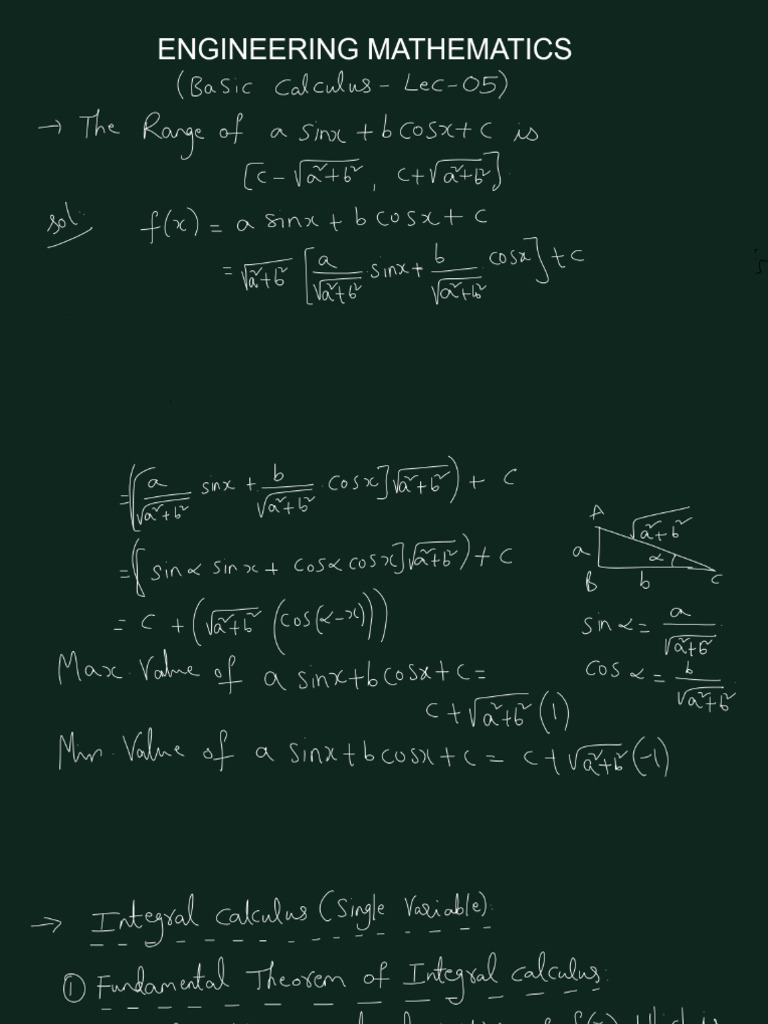 ENGINEERING MATHEMATICS
(Basic Calculus - Lec-05)
→ The Range of a sinx + b cosx + c is
[c - √(a²+b²) , c + √(a²+b²)].
Sol: f(x) = a sinx + b cosx + c
= √(a²+b²) [a/√(a²+b²) · sinx + b/√(a²+b²) · cosx] + c
= ([a/√(a²+b²) sinx + b/√(a²+b²) · cosx] √(a²+b²)) + c
= ([sinα sinx + cosα cosx] √(a²+b²)) + c
= c + (√(a²+b²) (cos(α-x)))
A
√(a²+b²)
a
α
B
b
C
sinα = a/√(a²+b²)
cosα = b/√(a²+b²)
Max. Value of a sinx + b cosx + c =
c + √(a²+b²) (1)
Min. Value of a sinx + b cosx + c = c + √(a²+b²) (-1)
→ Integral Calculus (Single Variable):
① Fundamental Theorem of Integral Calculus: